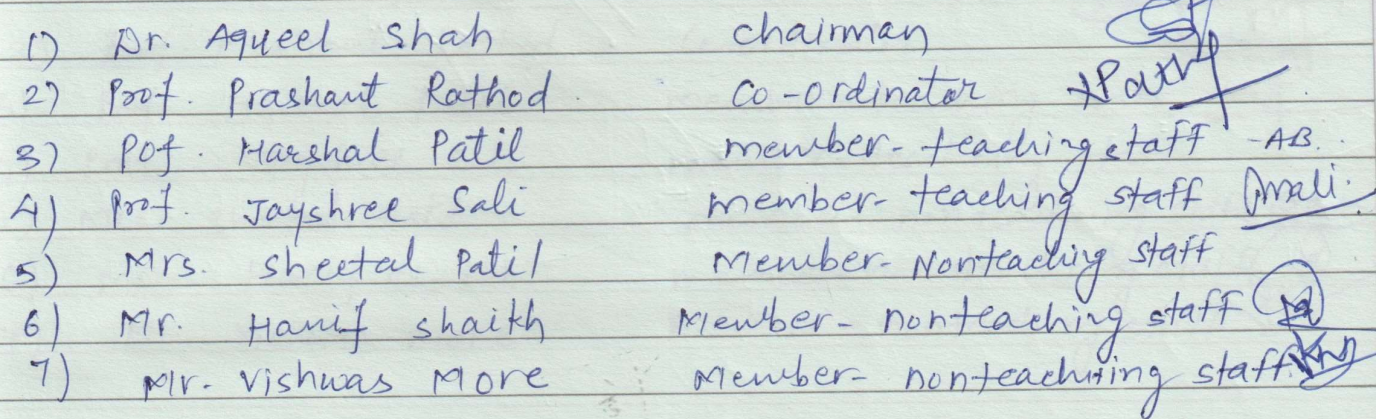 1) Dr. Aqueel Shah chairman
2) Prof. Prashant Rathod co-ordinator
3) Pof. Harshal Patil member- teaching staff -AB.
4) Prof. Jayshree Sali member- teaching staff
5) Mrs. Sheetal Patil Member- Nonteaching staff
6) Mr. Hanif shaikh Member- nonteaching staff
7) Mr. Vishwas More Member- nonteachiting staff